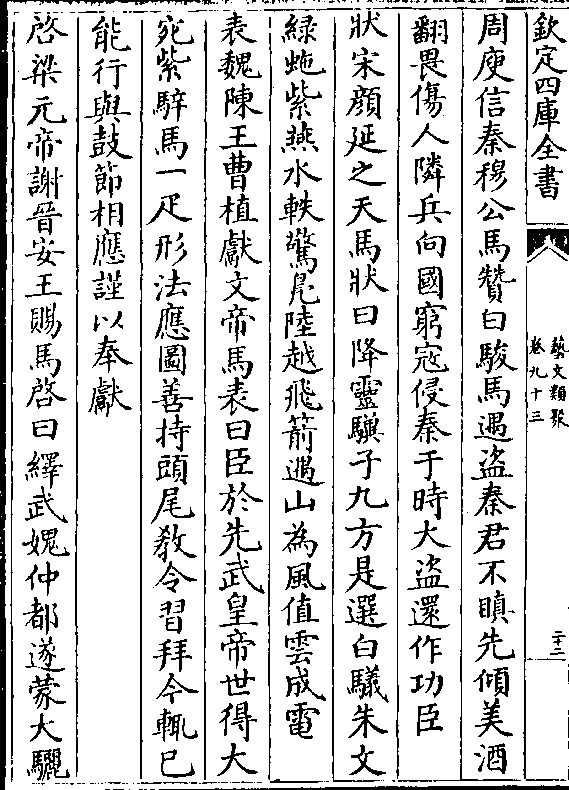 欽定四庫全書
藝文類聚
卷九十三
二十二
周庾信秦穆公馬贊曰駿馬遇盜秦君不瞋先傾美酒
翻畏傷人隣兵向國窮寇侵秦于時大盜還作功臣
狀宋顔延之天馬狀曰降靈驥子九方是選白驥朱文
緑虵紫燕水軼驚鳬陸越飛箭遇山為風值雲成電
表魏陳王曹植獻文帝馬表曰臣於先武皇帝世得大
宛紫騂馬一疋形法應圖善持頭尾教令習拜今輒已
能行與鼓節相應謹以奉獻
啓梁元帝謝晉安王賜馬啓曰繹武媿仲都遂蒙大驪